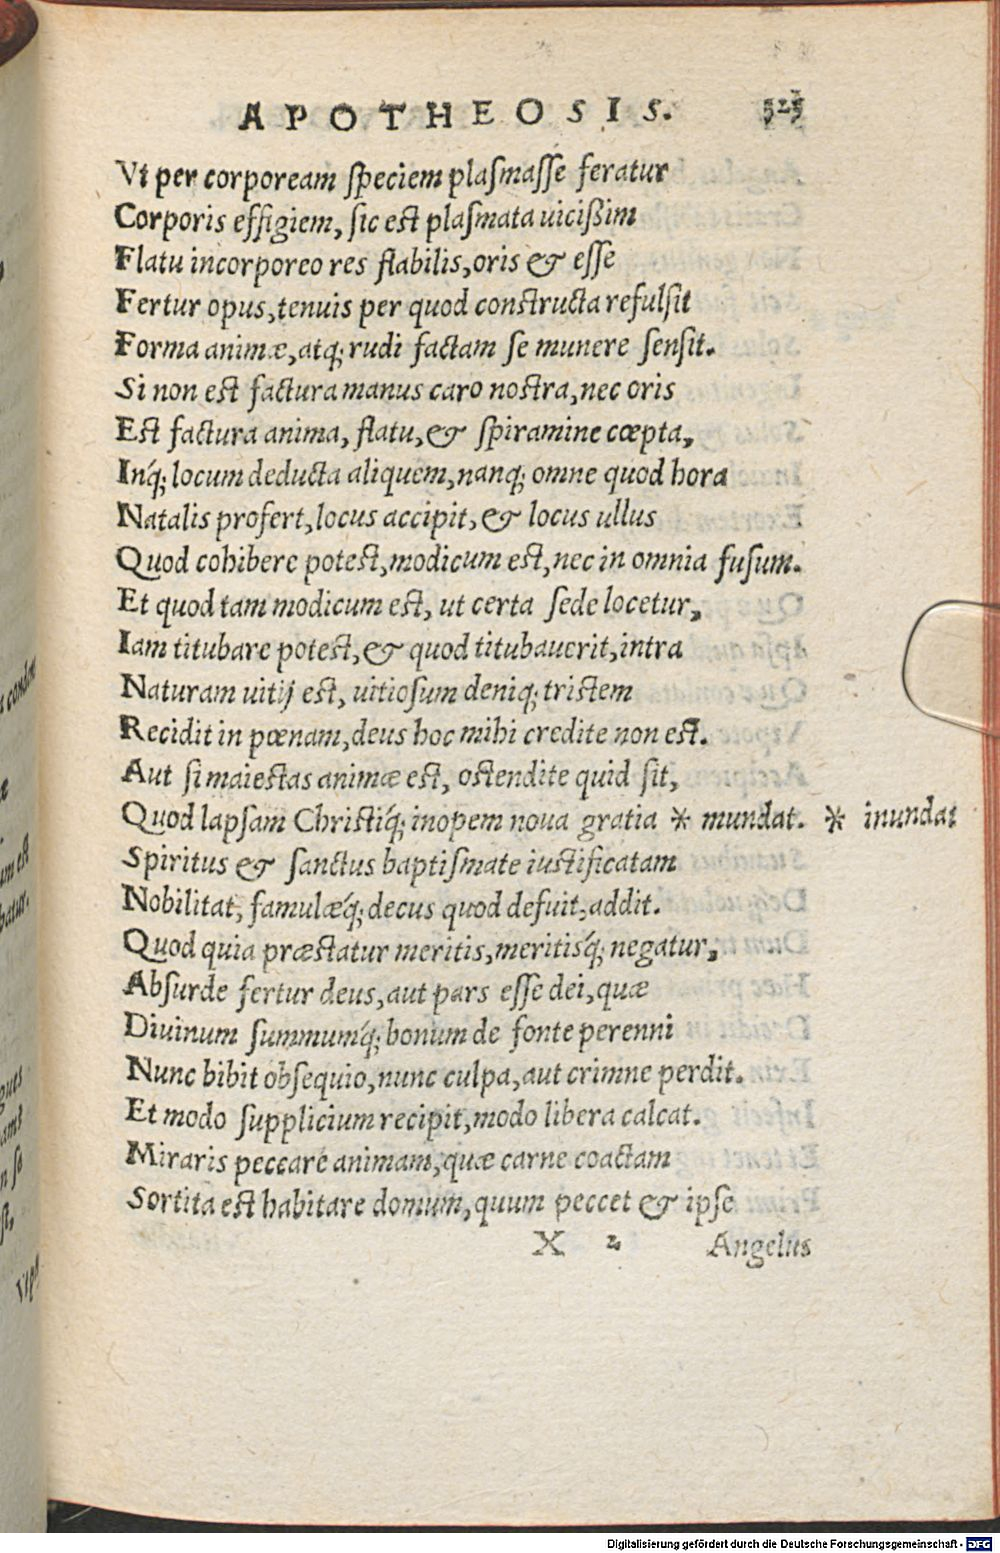 APOTHEOSIS. 323
Vt per corpoream speciem plasmasse feratur
Corporis effigiem, sic est plasmata uicißim
Flatu incorporeo res flabilis, oris & esse
Fertur opus, tenuis per quod constructa refulsit
Forma animæ, atq; rudi factam se munere sensit.
Si non est factura manus caro nostra, nec oris
Est factura anima, flatu, & spiramine cœpta,
Inq́; locum deducta aliquem, nanq; omne quod hora
Natalis profert, locus accipit, & locus ullus
Quod cohibere potest, modicum est, nec in omnia fusum.
Et quod tam modicum est, ut certa sede locetur,
Iam titubare potest, & quod titubauerit, intra
Naturam uitij est, uitiosum deniq; tristem
Recidit in pœnam, deus hoc mihi credite non est.
Aut si maiestas animæ est, ostendite quid sit,
Quod lapsam Christiq́; inopem noua gratia * mundat. * inundat
Spiritus & sanctus baptismate iustificatam
Nobilitat, famulæq́; decus quod defuit, addit.
Quod quia præstatur meritis, meritisq́; negatur,
Absurde fertur deus, aut pars esse dei, quæ
Diuinum summumq́; bonum de fonte perenni
Nunc bibit obsequio, nunc culpa, aut crimne perdit.
Et modo supplicium recipit, modo libera calcat.
Miraris peccare animam, quæ carne coactam
Sortita est habitare domum, quum peccet & ipse
X 2 Angelus
Digitalisierung gefördert durch die Deutsche Forschungsgemeinschaft - DFG